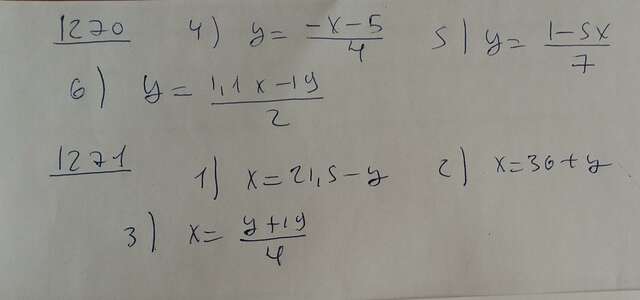 1270 4) y = (-x-5)/4 5) y = (1-5x)/7
6) y = (1,1x-19)/2
1271 1) x=21,5-y 2) x=36+y
3) x= (y+19)/4